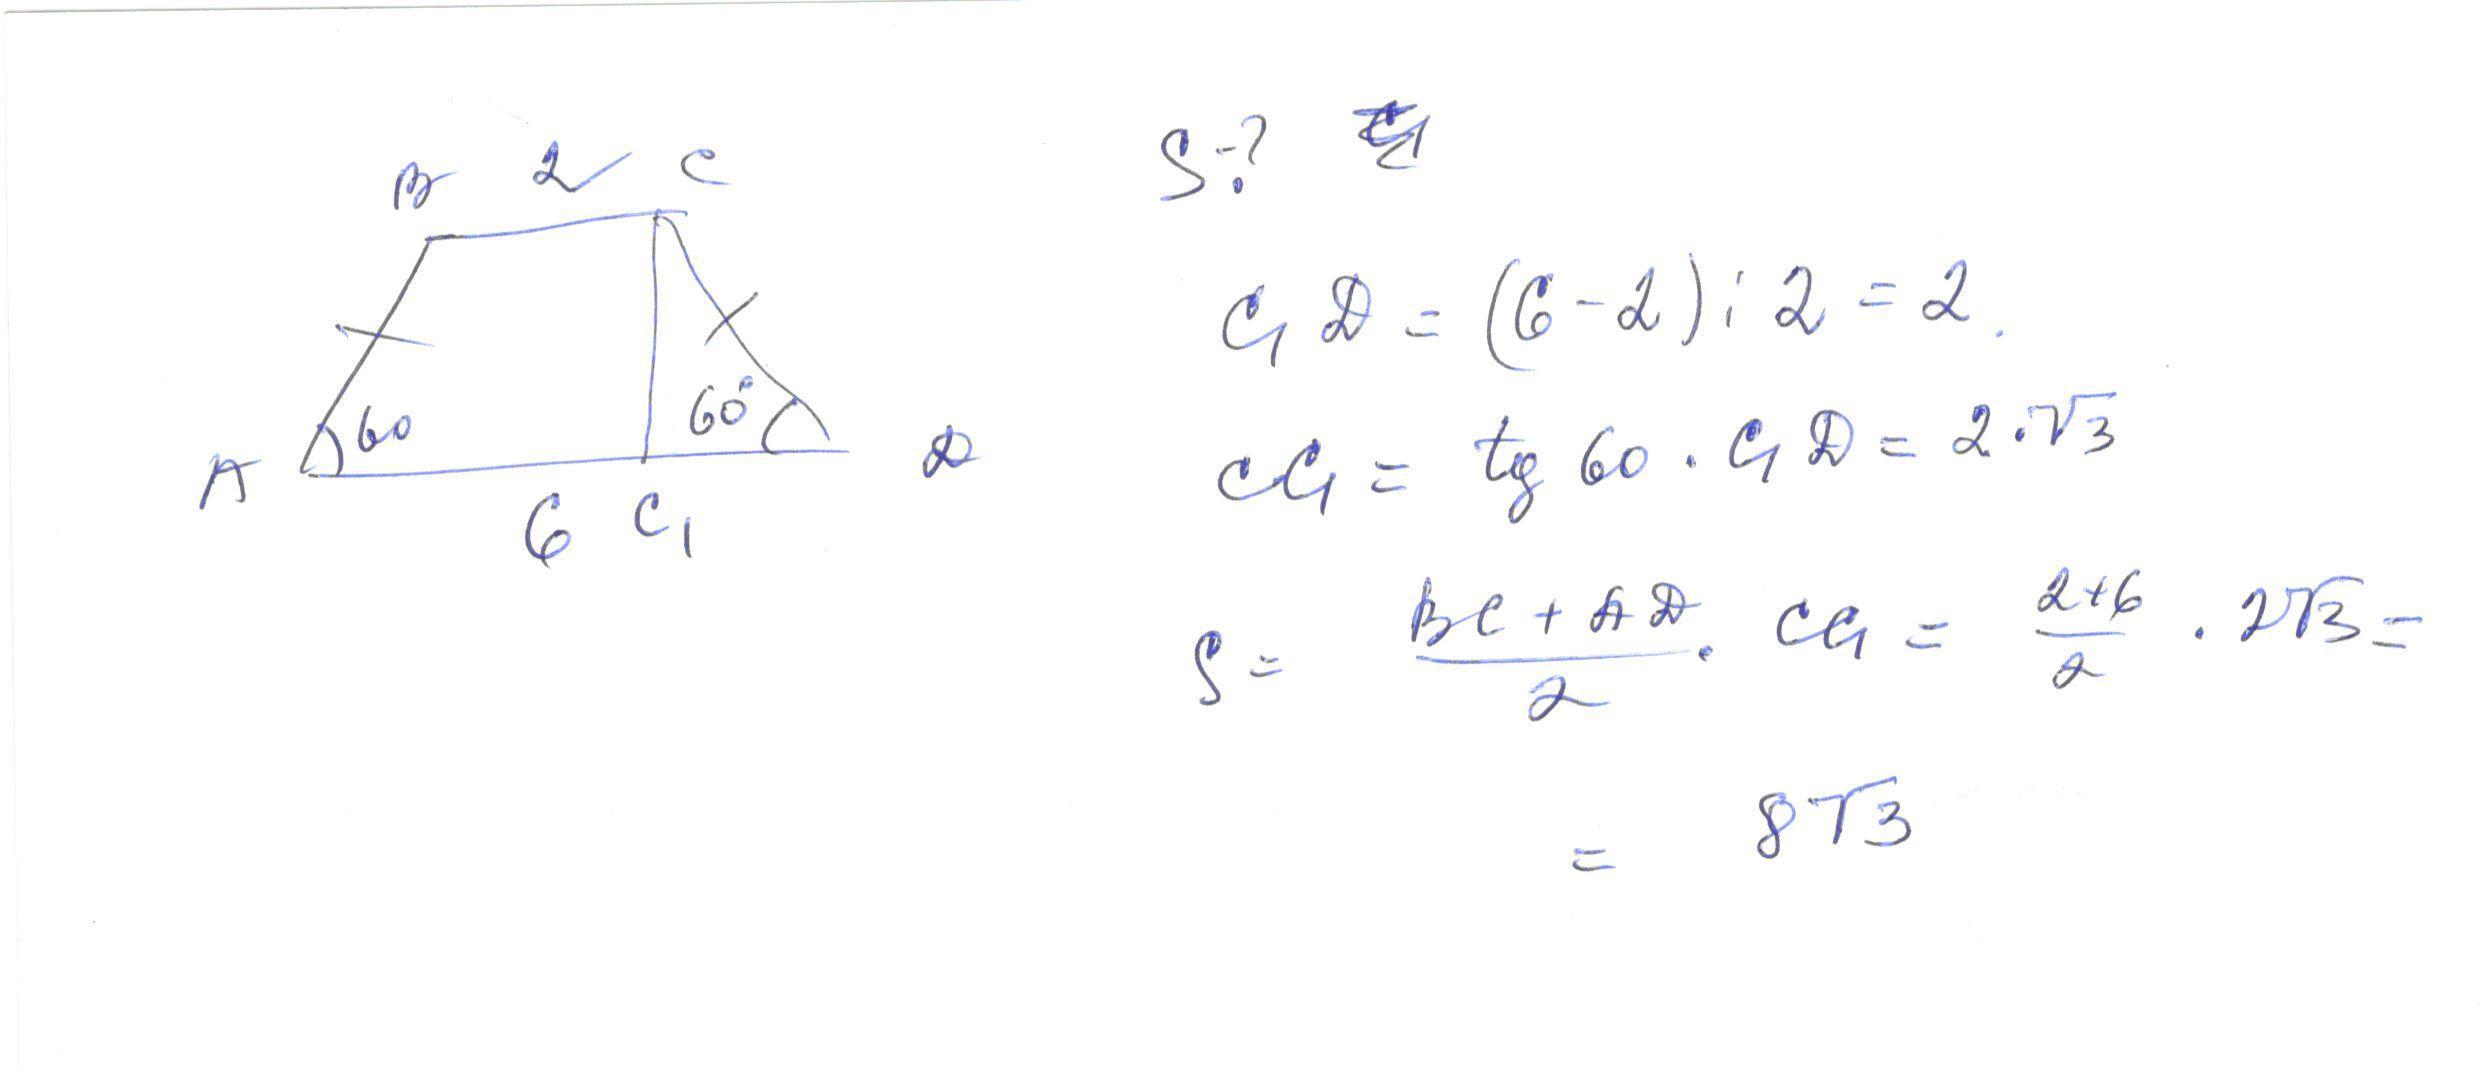 B 2 C
S-?
A 60 60° D
6 C₁
C₁D = (6-2) : 2 = 2.
CC₁ = tg 60 · C₁D = 2 · √3
S = (BC + AD)/2 · CC₁ = (2+6)/2 · 2√3 =
= 8√3